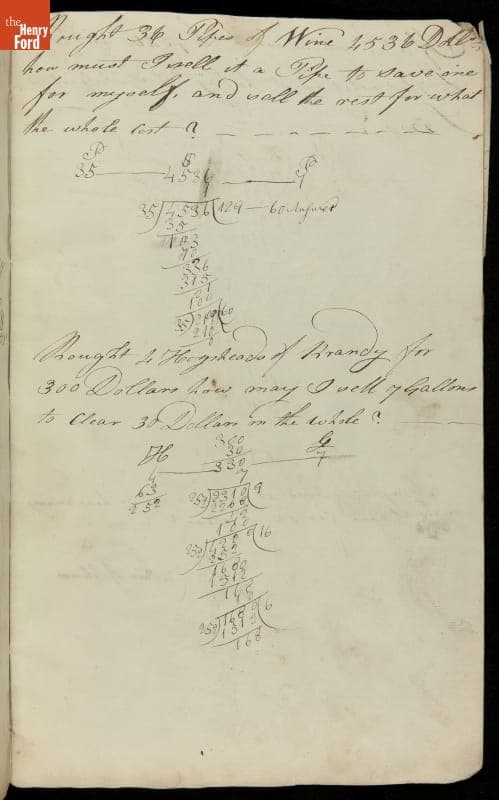 the
Henry
Ford
Bought 36 Pipes of Wine 4536 Doll
how must I sell it a Pipe to save one
for myself, and sell the rest for what
the whole cost ?
P $ P
35 4536 1
35)4536(129 60 Answer
35
103
70
336
315
21
100
35)2100(60
210
Bought 4 Hogsheads of Brandy for
300 Dollars how may I sell 7 Gallons
to clear 30 Dollars in the whole ?
300
H 30 G
4 330 7
63 7
252 252)2310(9
2268
42
100
252)4200(16
252
1680
1512
168
252)1680(6
1512
168